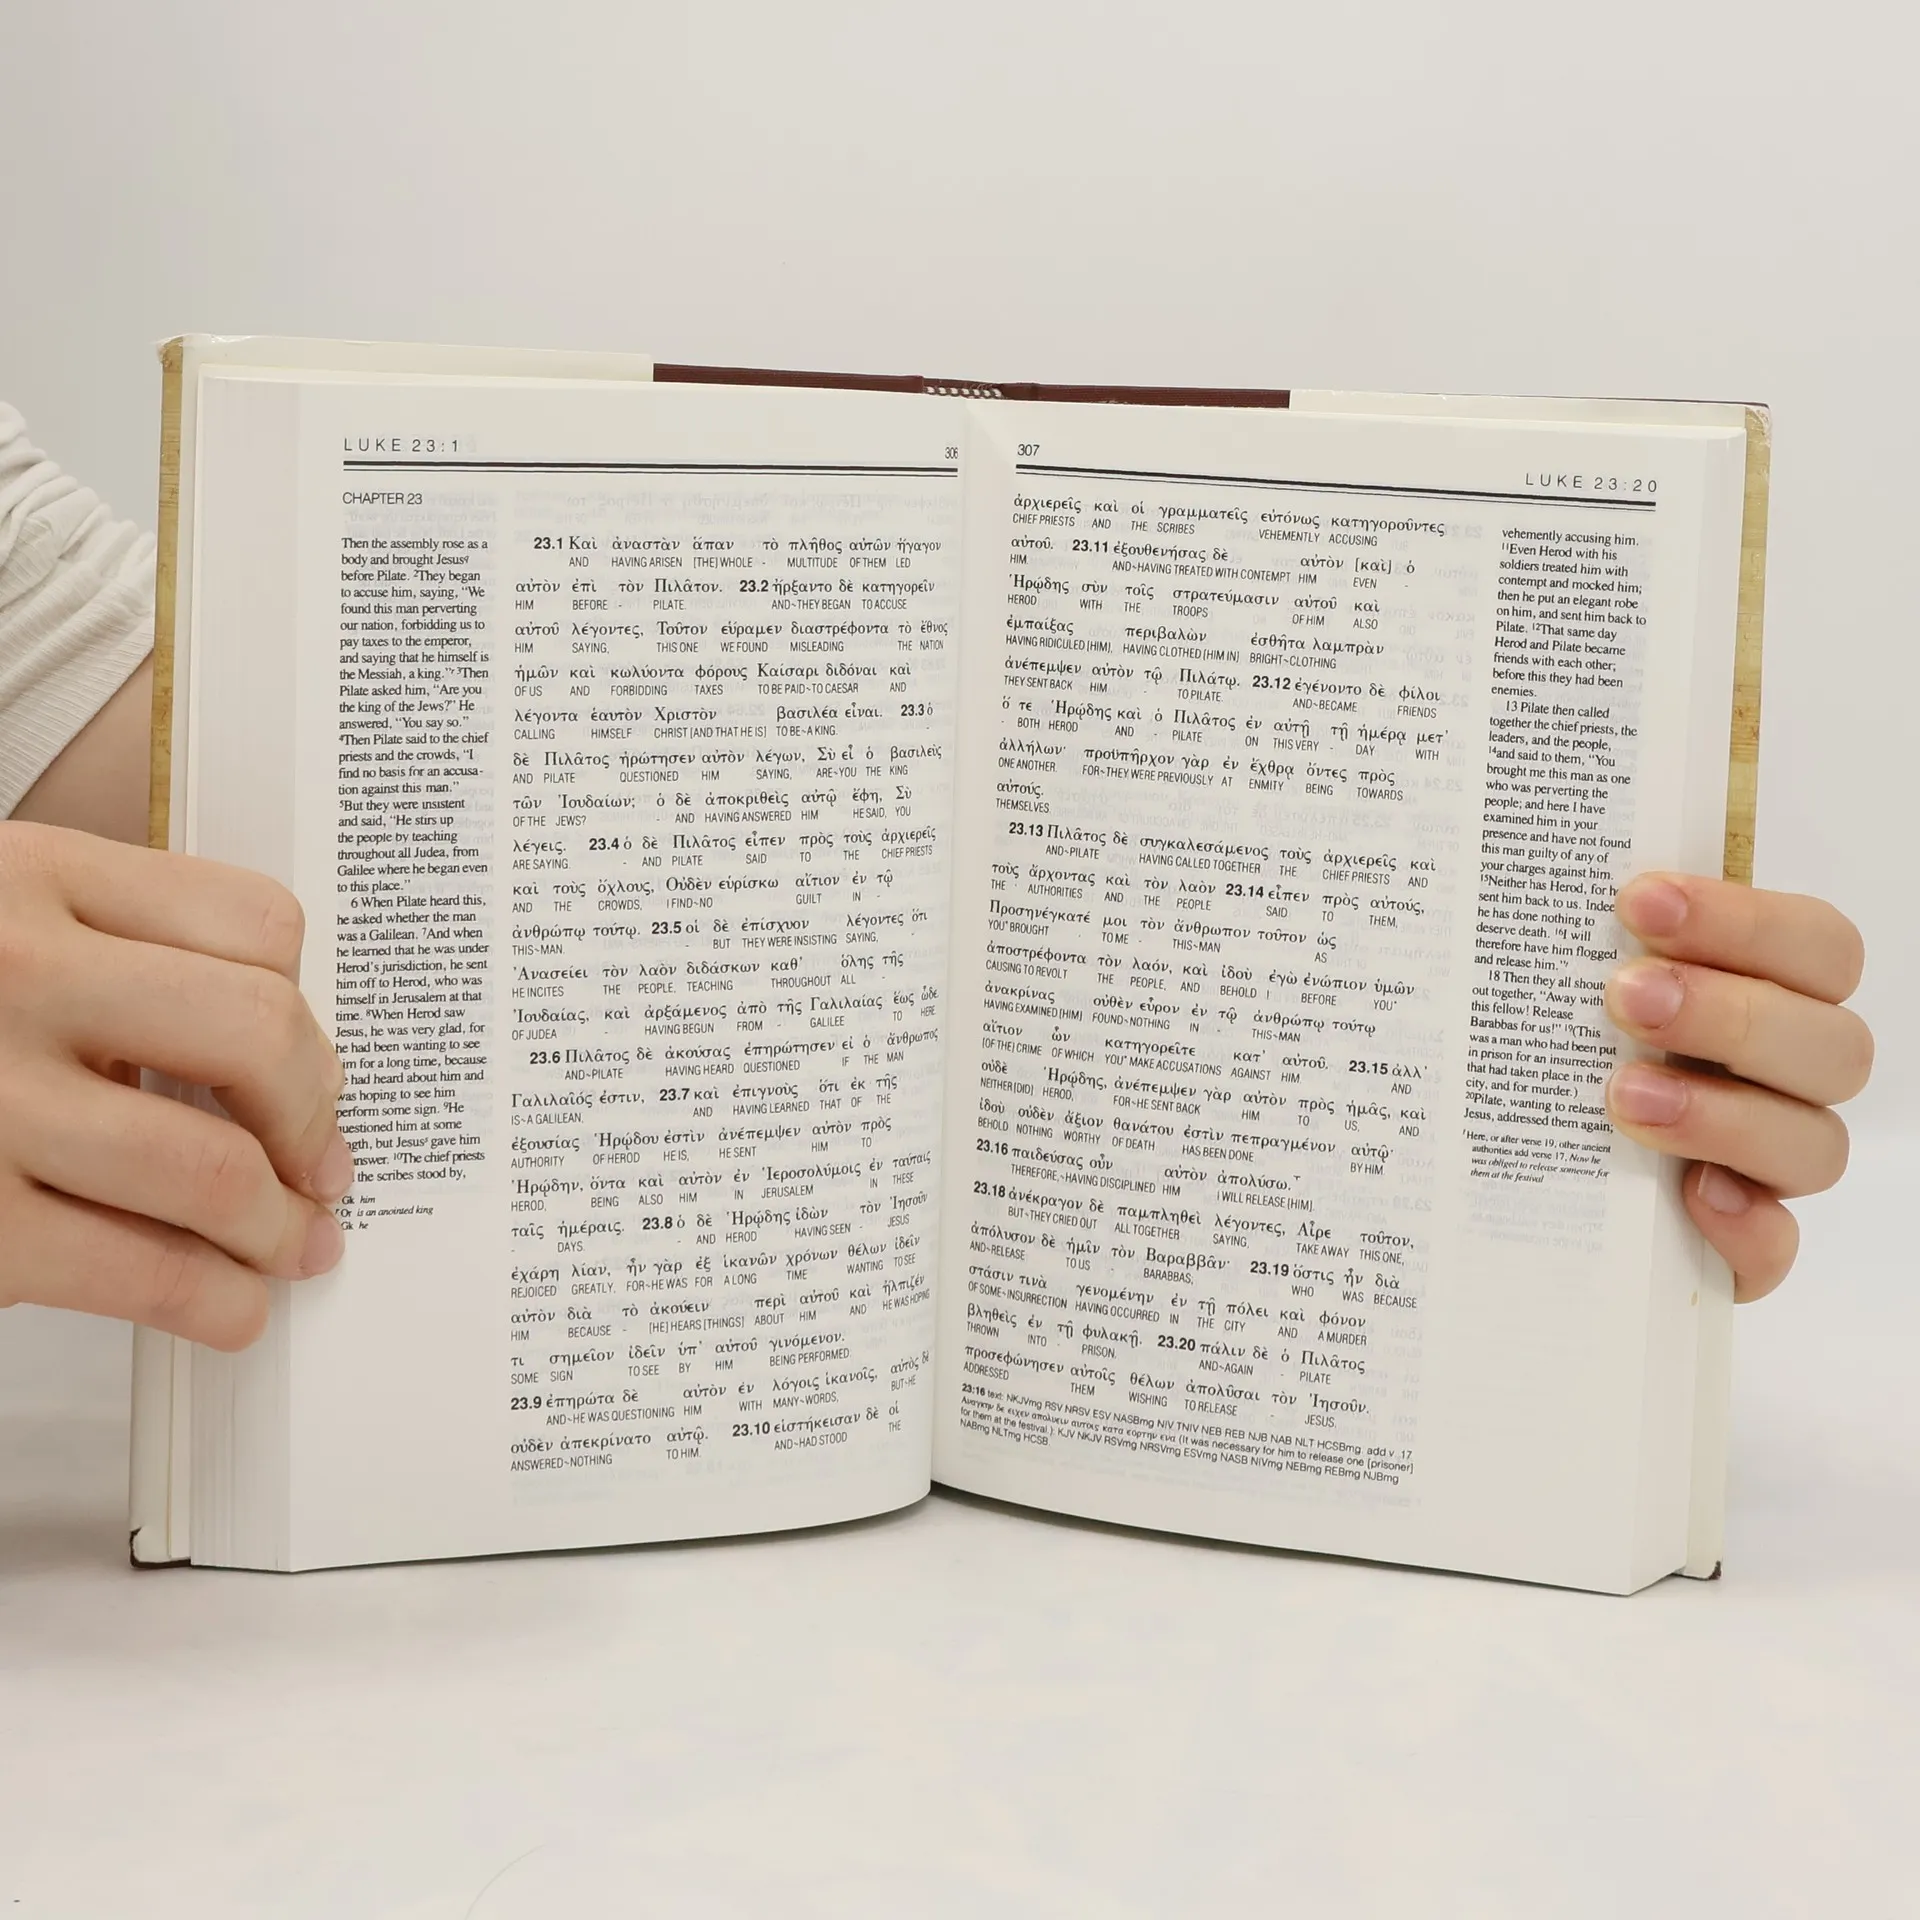 LUKE 23:1
306
CHAPTER 23
Then the assembly rose as a
body and brought Jesusq
before Pilate. 2They began
to accuse him, saying, “We
found this man perverting
our nation, forbidding us to
pay taxes to the emperor,
and saying that he himself is
the Messiah, a king.”r 3Then
Pilate asked him, “Are you
the king of the Jews?” He
answered, “You say so.”
4Then Pilate said to the chief
priests and the crowds, “I
find no basis for an accusa-
tion against this man.”
5But they were insistent
and said, “He stirs up
the people by teaching
throughout all Judea, from
Galilee where he began even
to this place.”
6 When Pilate heard this,
he asked whether the man
was a Galilean. 7And when
he learned that he was under
Herod's jurisdiction, he sent
him off to Herod, who was
himself in Jerusalem at that
time. 8When Herod saw
Jesus, he was very glad, for
he had been wanting to see
im for a long time, because
had heard about him and
was hoping to see him
perform some sign. 9He
uestioned him at some
ngth, but Jesuss gave him
answer. 10The chief priests
the scribes stood by,
Gk him
r Or is an anointed king
Gk he
23.1 Καὶ ἀναστὰν ἅπαν τὸ πλῆθος αὐτῶν ἤγαγον
AND HAVING ARISEN [THE] WHOLE - MULTITUDE OF THEM LED
αὐτὸν ἐπὶ τὸν Πιλᾶτον. 23.2 ἤρξαντο δὲ κατηγορεῖν
HIM BEFORE - PILATE. AND~THEY BEGAN TO ACCUSE
αὐτοῦ λέγοντες, Τοῦτον εὕραμεν διαστρέφοντα τὸ ἔθνος
HIM SAYING, THIS ONE WE FOUND MISLEADING THE NATION
ἡμῶν καὶ κωλύοντα φόρους Καίσαρι διδόναι καὶ
OF US AND FORBIDDING TAXES TO BE PAID~TO CAESAR AND
λέγοντα ἑαυτὸν Χριστὸν βασιλέα εἶναι. 23.3 ὁ
CALLING HIMSELF CHRIST [AND THAT HE IS] TO BE~A KING. -
δὲ Πιλᾶτος ἠρώτησεν αὐτὸν λέγων, Σὺ εἶ ὁ βασιλεὺς
AND PILATE QUESTIONED HIM SAYING, ARE~YOU THE KING
τῶν Ἰουδαίων; ὁ δὲ ἀποκριθεὶς αὐτῷ ἔφη, Σὺ
OF THE JEWS? - AND HAVING ANSWERED HIM HE SAID, YOU
λέγεις. 23.4 ὁ δὲ Πιλᾶτος εἶπεν πρὸς τοὺς ἀρχιερεῖς
ARE SAYING. - AND PILATE SAID TO THE CHIEF PRIESTS
καὶ τοὺς ὄχλους, Οὐδὲν εὑρίσκω αἴτιον ἐν τῷ
AND THE CROWDS, I FIND~NO GUILT IN -
ἀνθρώπῳ τούτῳ. 23.5 οἱ δὲ ἐπίσχυον λέγοντες ὅτι
THIS~MAN. - BUT THEY WERE INSISTING SAYING, -
Ἀνασείει τὸν λαὸν διδάσκων καθ' ὅλης τῆς
HE INCITES THE PEOPLE, TEACHING THROUGHOUT ALL -
Ἰουδαίας, καὶ ἀρξάμενος ἀπὸ τῆς Γαλιλαίας ἕως ὧδε.
OF JUDEA - HAVING BEGUN FROM - GALILEE TO HERE
23.6 Πιλᾶτος δὲ ἀκούσας ἐπηρώτησεν εἰ ὁ ἄνθρωπος
AND~PILATE HAVING HEARD QUESTIONED IF THE MAN
Γαλιλαῖός ἐστιν, 23.7 καὶ ἐπιγνοὺς ὅτι ἐκ τῆς
IS~A GALILEAN, AND HAVING LEARNED THAT OF THE
ἐξουσίας Ἡρῴδου ἐστὶν ἀνέπεμψεν αὐτὸν πρὸς
AUTHORITY OF HEROD HE IS, HE SENT HIM TO
Ἡρῴδην, ὄντα καὶ αὐτὸν ἐν Ἱεροσολύμοις ἐν ταύταις
HEROD, BEING ALSO HIM IN JERUSALEM IN THESE
ταῖς ἡμέραις. 23.8 ὁ δὲ Ἡρῴδης ἰδὼν τὸν Ἰησοῦν
- DAYS. - AND HEROD HAVING SEEN - JESUS
ἐχάρη λίαν, ἦν γὰρ ἐξ ἱκανῶν χρόνων θέλων ἰδεῖν
REJOICED GREATLY, FOR~HE WAS FOR A LONG TIME WANTING TO SEE
αὐτὸν διὰ τὸ ἀκούειν περὶ αὐτοῦ καὶ ἤλπιζέν
HIM BECAUSE - [HE] HEARS [THINGS] ABOUT HIM AND HE WAS HOPING
τι σημεῖον ἰδεῖν ὑπ' αὐτοῦ γινόμενον.
SOME SIGN TO SEE BY HIM BEING PERFORMED.
23.9 ἐπηρώτα δὲ αὐτὸν ἐν λόγοις ἱκανοῖς, αὐτὸς δὲ
AND~HE WAS QUESTIONING HIM WITH MANY~WORDS, BUT~HE
οὐδὲν ἀπεκρίνατο αὐτῷ. 23.10 εἱστήκεισαν δὲ οἱ
ANSWERED~NOTHING TO HIM. AND~HAD STOOD THE
307
LUKE 23:20
ἀρχιερεῖς καὶ οἱ γραμματεῖς εὐτόνως κατηγοροῦντες
CHIEF PRIESTS AND THE SCRIBES VEHEMENTLY ACCUSING
αὐτοῦ. 23.11 ἐξουθενήσας δὲ αὐτὸν [καὶ] ὁ
HIM. AND~HAVING TREATED WITH CONTEMPT HIM EVEN -
Ἡρῴδης σὺν τοῖς στρατεύμασιν αὐτοῦ καὶ
HEROD WITH THE TROOPS OF HIM ALSO
ἐμπαίξας περιβαλὼν ἐσθῆτα λαμπρὰν
HAVING RIDICULED [HIM], HAVING CLOTHED [HIM IN] BRIGHT~CLOTHING
ἀνέπεμψεν αὐτὸν τῷ Πιλάτῳ. 23.12 ἐγένοντο δὲ φίλοι
THEY SENT BACK HIM - TO PILATE. AND~BECAME FRIENDS
ὅ τε Ἡρῴδης καὶ ὁ Πιλᾶτος ἐν αὐτῇ τῇ ἡμέρᾳ μετ'
- BOTH HEROD AND - PILATE ON THIS VERY - DAY WITH
ἀλλήλων· προϋπῆρχον γὰρ ἐν ἔχθρᾳ ὄντες πρὸς
ONE ANOTHER. FOR~THEY WERE PREVIOUSLY AT ENMITY BEING TOWARDS
αὐτούς.
THEMSELVES.
23.13 Πιλᾶτος δὲ συγκαλεσάμενος τοὺς ἀρχιερεῖς καὶ
AND~PILATE HAVING CALLED TOGETHER THE CHIEF PRIESTS AND
τοὺς ἄρχοντας καὶ τὸν λαὸν 23.14 εἶπεν πρὸς αὐτούς,
THE AUTHORITIES AND THE PEOPLE SAID TO THEM,
Προσηνέγκατέ μοι τὸν ἄνθρωπον τοῦτον ὡς
YOU° BROUGHT TO ME - THIS~MAN AS
ἀποστρέφοντα τὸν λαόν, καὶ ἰδοὺ ἐγὼ ἐνώπιον ὑμῶν
CAUSING TO REVOLT THE PEOPLE, AND BEHOLD I BEFORE YOU°
ἀνακρίνας οὐθὲν εὗρον ἐν τῷ ἀνθρώπῳ τούτῳ
HAVING EXAMINED [HIM] FOUND~NOTHING IN - THIS~MAN
αἴτιον ὧν κατηγορεῖτε κατ' αὐτοῦ. 23.15 ἀλλ'
[OF THE] CRIME OF WHICH YOU° MAKE ACCUSATIONS AGAINST HIM AND
οὐδὲ Ἡρῴδης, ἀνέπεμψεν γὰρ αὐτὸν πρὸς ἡμᾶς, καὶ
NEITHER [DID] HEROD, FOR~HE SENT BACK HIM TO US, AND
ἰδοὺ οὐδὲν ἄξιον θανάτου ἐστὶν πεπραγμένον αὐτῷ·
BEHOLD NOTHING WORTHY OF DEATH HAS BEEN DONE BY HIM
23.16 παιδεύσας οὖν αὐτὸν ἀπολύσω.⸆
THEREFORE,~HAVING DISCIPLINED HIM I WILL RELEASE [HIM].
23.18 ἀνέκραγον δὲ παμπληθεὶ λέγοντες, Αἶρε τοῦτον,
BUT~THEY CRIED OUT ALL TOGETHER SAYING, TAKE AWAY THIS ONE,
ἀπόλυσον δὲ ἡμῖν τὸν Βαραββᾶν· 23.19 ὅστις ἦν διὰ
AND~RELEASE TO US - BARABBAS, WHO WAS BECAUSE
στάσιν τινὰ γενομένην ἐν τῇ πόλει καὶ φόνον
OF SOME~INSURRECTION HAVING OCCURRED IN THE CITY AND A MURDER
βληθεὶς ἐν τῇ φυλακῇ. 23.20 πάλιν δὲ ὁ Πιλᾶτος
THROWN INTO - PRISON. AND~AGAIN - PILATE
προσεφώνησεν αὐτοῖς θέλων ἀπολῦσαι τὸν Ἰησοῦν.
ADDRESSED THEM WISHING TO RELEASE - JESUS.
23:16 text: NKJVmg RSV NRSV ESV NASBmg NIV TNIV NEB REB NJB NAB NLT HCSBmg. add v. 17
Αναγκην δε ειχεν απολυειν αυτοις κατα εορτην ενα (It was necessary for him to release one [prisoner]
for them at the festival.): KJV NKJV RSVmg NRSVmg ESVmg NASB NIVmg NEBmg REBmg NJBmg
NABmg NLTmg HCSB.
vehemently accusing him.
11Even Herod with his
soldiers treated him with
contempt and mocked him;
then he put an elegant robe
on him, and sent him back to
Pilate. 12That same day
Herod and Pilate became
friends with each other;
before this they had been
enemies.
13 Pilate then called
together the chief priests, the
leaders, and the people,
14and said to them, “You
brought me this man as one
who was perverting the
people; and here I have
examined him in your
presence and have not found
this man guilty of any of
your charges against him.
15Neither has Herod, for h
sent him back to us. Indee
he has done nothing to
deserve death. 16I will
therefore have him flogged
and release him.”t
18 Then they all shoute
out together, “Away with
this fellow! Release
Barabbas for us!” 19(This
was a man who had been put
in prison for an insurrection
that had taken place in the
city, and for murder.)
20Pilate, wanting to release
Jesus, addressed them again;
t Here, or after verse 19, other ancient
authorities add verse 17, Now he
was obliged to release someone for
them at the festival